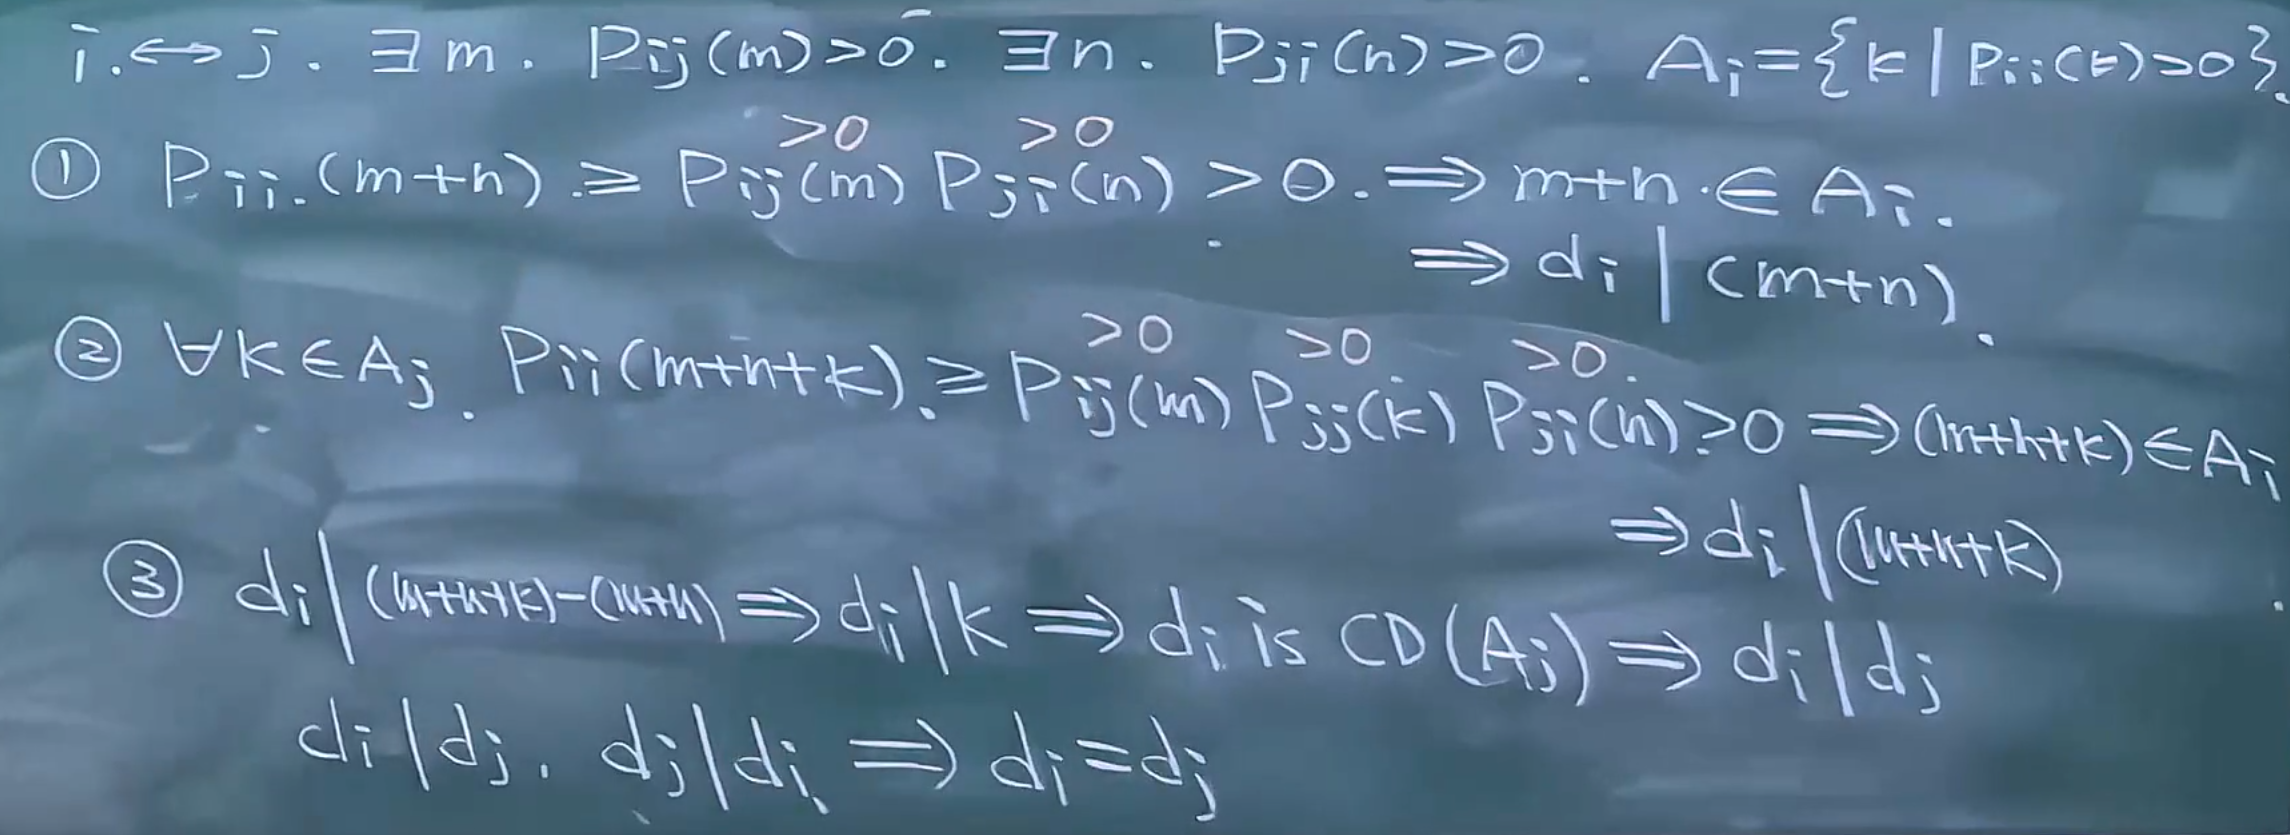 i ↔ j. ∃m. Pij(m)>0. ∃n. Pji(n)>0. Ai={k|Pii(k)>0}.
>0 >0
① Pii(m+n) ≥ Pij(m) Pji(n) > 0. ⇒ m+n ∈ Ai.
⇒ di | (m+n).
>0 >0 >0
② ∀k∈Aj. Pii(m+n+k) ≥ Pij(m) Pjj(k) Pji(n) >0 ⇒ (m+n+k)∈Ai
⇒ di | (m+n+k)
③ di | (m+n+k)-(m+n) ⇒ di|k ⇒ di is CD(Aj) ⇒ di|dj
di|dj. dj|di ⇒ di=dj